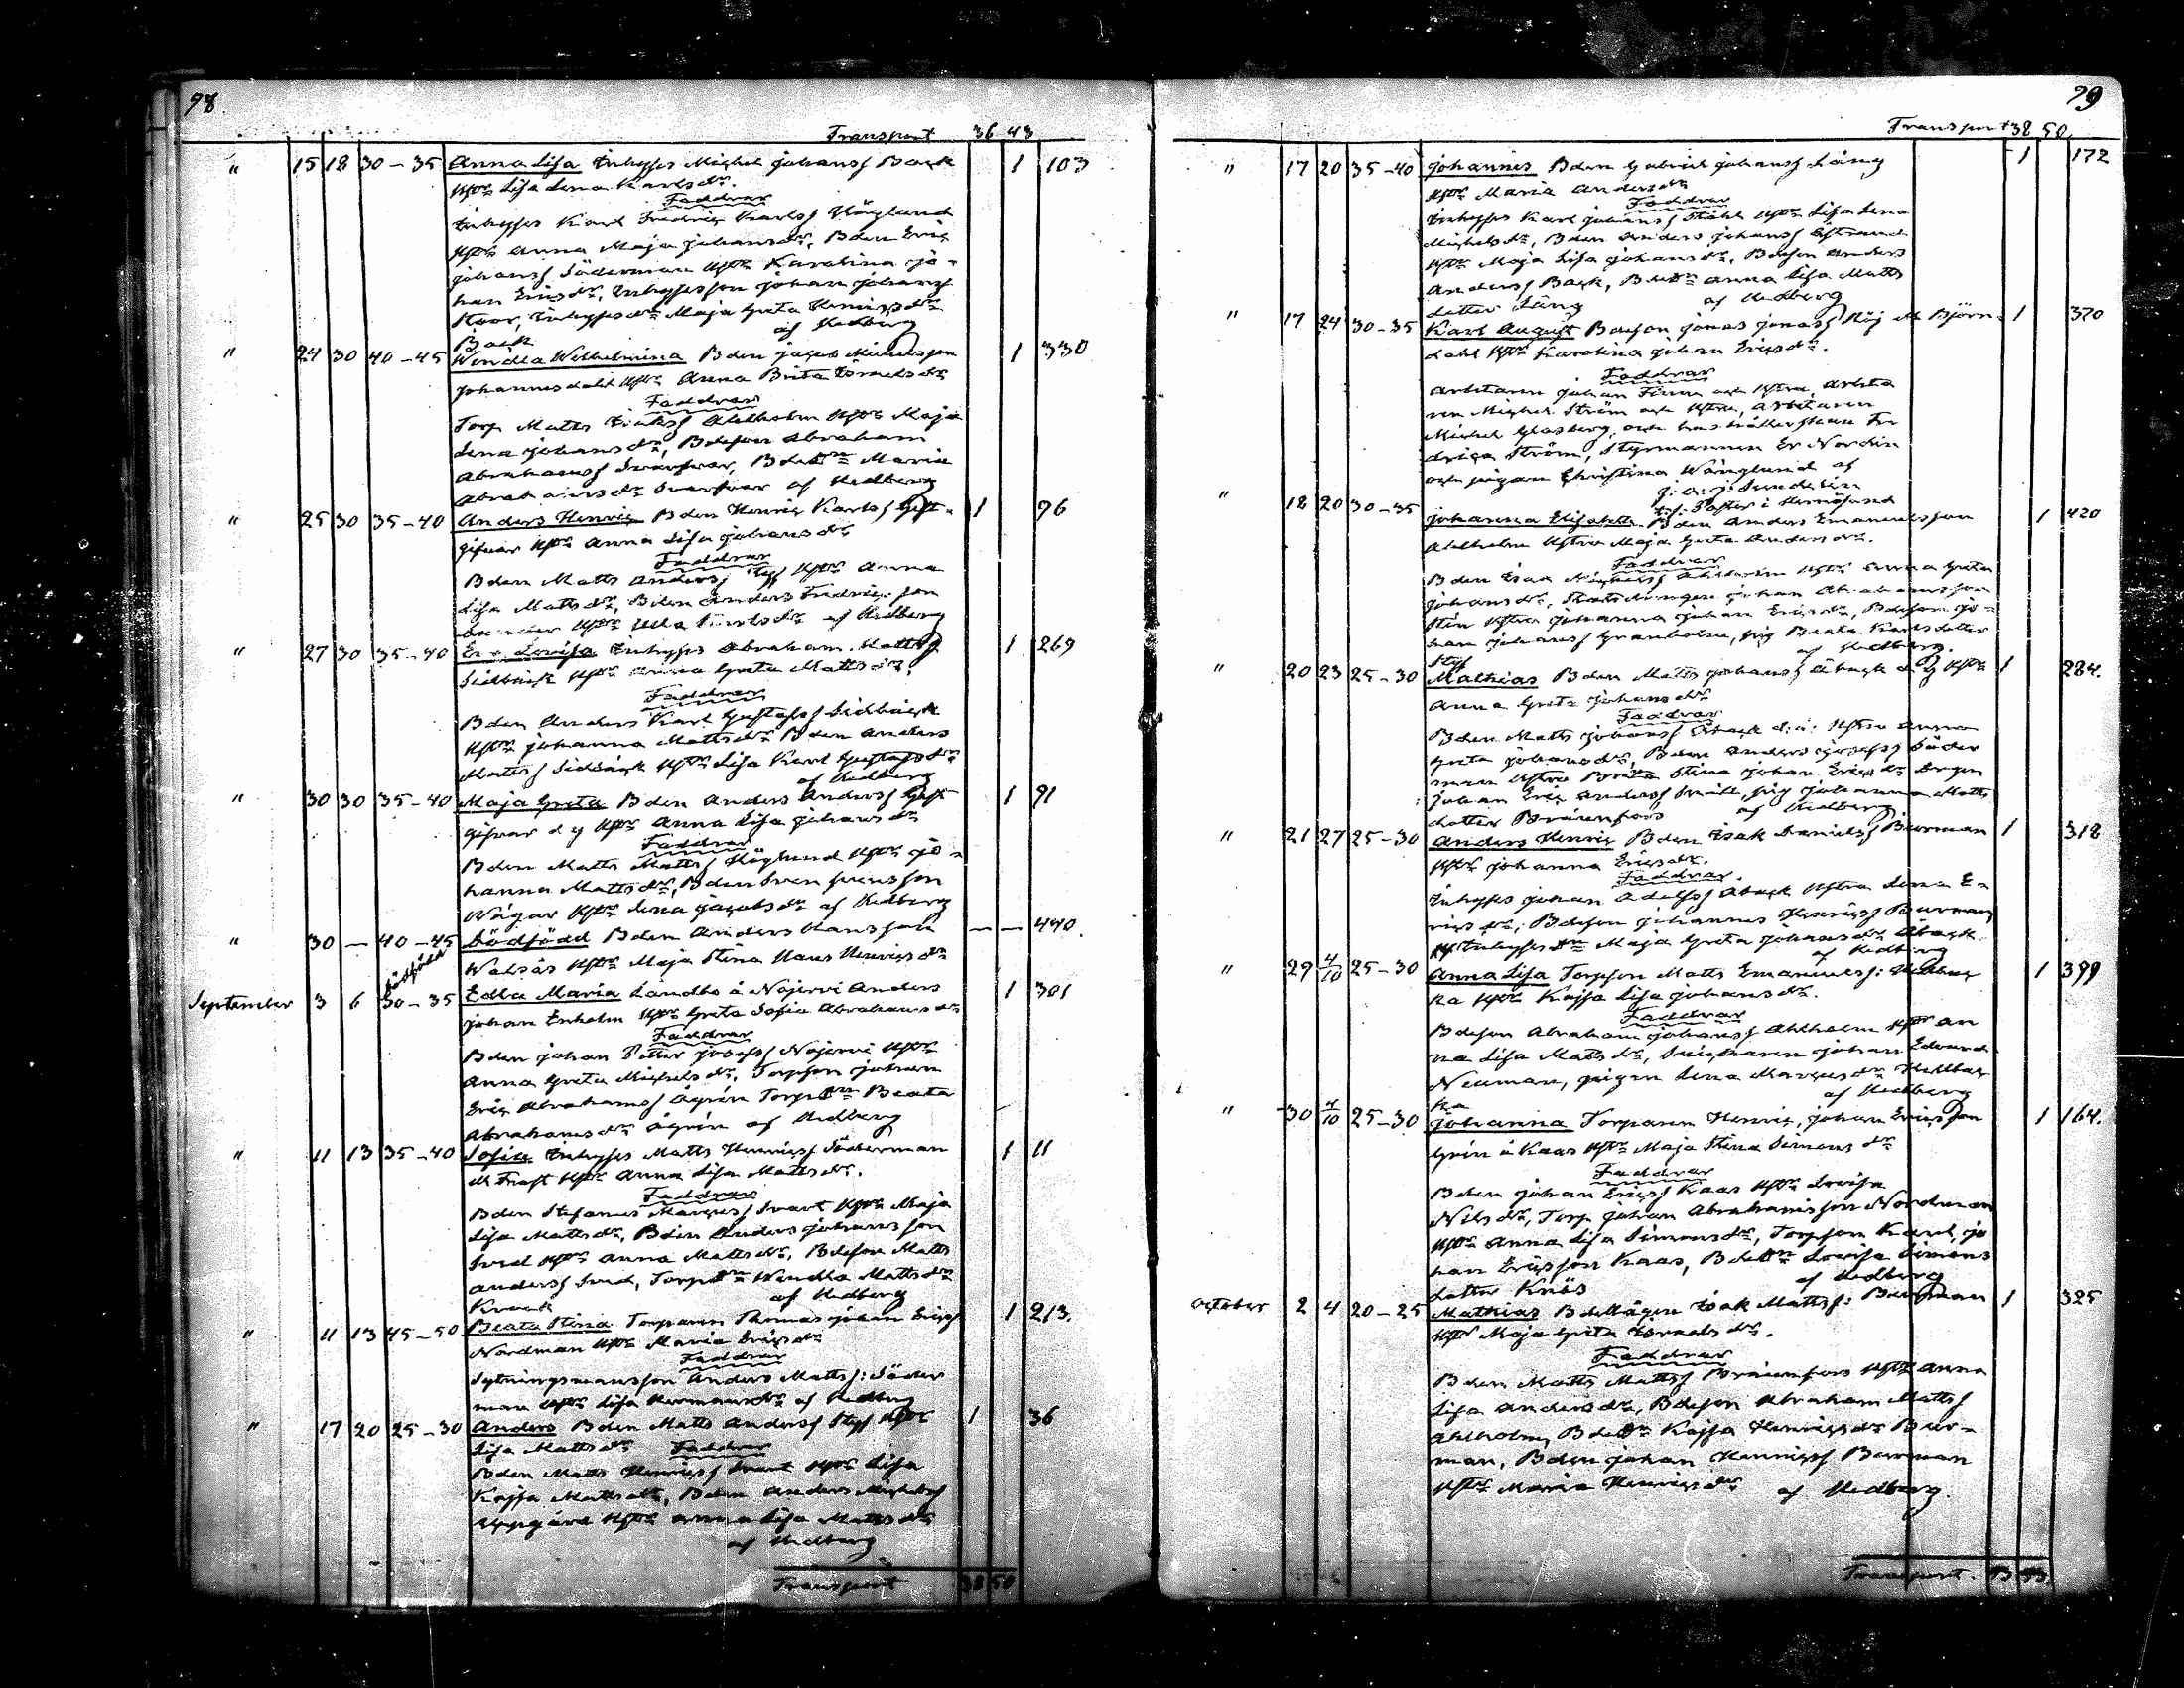 98.
Transport 36 43
" 15 18 30-35 Anna Lisa Inhyses Michel Johans Back 1 103
Hstr Lisa Lena Karlsdr.
Faddrar
Inhyses Karl Fredric Karls Höglund
Hstr Anna Maja Johansdr, Bden Eric
Johans Söderman Hstr Karolina Jo-
han Ericsdr, Inhyses son Johan Johans
Stoor, Inhysesdr Maja Greta Henricsdr
Back af Hedberg
" 24 30 40-45 Wendla Wilhelmina Bden Jacob Michelsson 1 330
Johannesdahl Hstr Anna Brita Israelsdr
Faddrar
Torp Matts Isaks Ahlholm Hstr Maja
Lena Johansdr, Bdeson Abraham
Abrahams Svarfvar, Bdedr Maria
Abrahamsdr Svarfvar af Hedberg
" 25 30 35-40 Anders Henric Bden Henric Karls Gäst- 1 96
gifvar Hstr Anna Lisa Johansdr
Faddrar
Bden Matts Anders Hstr Anna
Lisa Mattsdr, Bden Anders Fredric son
Hstr Ulla af Hedberg
" 27 30 35-40 Eva Lovisa Inhyses Abraham Matts 1 269
Sidbäck Hstr Anna Greta Mattsdr.
Faddrar
Bden Anders Karl Gustafs Sidbäck
Hstr Johanna Mattsdr Bden Anders
Matts Sidbäck Hstr Lisa Karl Gustafsdr
af Hedberg
" 30 30 35-40 Maja Greta Bden Anders Anders Gäst 1 91
gifvar d y Hstr Anna Lisa Johansdr
Faddrar
Bden Matts Matts Höglund Hstr Jo-
hanna Mattsdr, Bden Sven Svensson
Wägar Hstr Lena Jacobsdr af Hedberg
" 30 — 40-45 Dödfödd Bden Anders Hansson — — 440.
Walsås Hstr Maja Stina Hans Henricsdr
dödfödd
September 3 6 30-35 Edla Maria Landbo å Näjervi Anders 1 301
Johan Enholm Hstr Greta Sofia Abrahamsdr
Faddrar
Bden Johan Petter Josefs Näjervi Hstr
Anna Greta Michelsdr, Torpson Johan
Eric Abrahams Ågren Torpdr Beata
Abrahamsdr Ågren af Hedberg
" 11 13 35-40 Sofia Inhyses Matts Henrics Söderman 1 11
Hstr Anna Lisa Mattsdr.
Faddrar
Bden Stefanus Marcus Svart Hstr Maja
Lisa Mattsdr, Bden Anders Johansson
Sved Hstr Anna Mattsdr, Bdeson Matts
Anders Sved, Torpdr Wendla Mattsdr
af Hedberg
" 11 13 45-50 Beata Stina Torparen Thomas Johan Erics 1 213.
Nordman Hstr Maria Ericsdr
Faddrar
Sytningsmansson Anders Matts: Söder
man Hstr Lisa Hermansdr af Hedberg
" 17 20 25-30 Anders Bden Matts Anders Hstr 1 36
Lisa Mattsdr Faddrar
Bden Matts Henrics Svart Hstr Lisa
Kajsa Mattsdr, Bden Anders Michels
Uppgård Hstr Anna Lisa Mattsdr
af Hedberg
Transport 38 50
99
Transport 38 50.
" 17 20 35-40 Johannes Bden Gabriel Johans Läng 1 172
Hstr Maria Andersdr
Faddrar
Inhyses Karl Johans Ståhl Hstr Lisa Lena
Michelsdr, Bden Anders Johans Åstrand
Hstr Maja Lisa Johansdr, Bdeson Anders
Anders Back, Bdedr Anna Lisa Matts
dotter Läng af Hedberg
" 17 24 30-35 Karl August Bdeson Jonas Jonas Björn- 1 370
dahl Hstr Karolina Johan Ericsdr.
Faddrar
Arbetaren Johan Finne och Hstru, Arbeta
ren Michel Ström och Hstru, Arbetaren
Michel Glasberg, och hushållerskan Fre
drica Ström, Styrmannen Er Nordin
och pigan Christina Wänglund af
J: A: J: Sundelin
Pastor i Hernösand
" 18 20 30-35 Johanna Elisabeth Bden Anders Emanuelsson 1 420
Ahlholm Hstru Maja Greta Andersdr.
Faddrar
Bden Isac Michels Ahlholm Hstr Anna Greta
Johansdr, Johan Abrahamsson
Hstru Johanna Johan Ericsdr, Bdeson Jo-
han Johans Granholm, pig Beata Karlsdotter
af Hedberg.
" 20 23 25-30 Mathias Bden Matts Johans Åback d y Hstr 1 284.
Anna Greta Johansdr
Faddrar
Bden Matts Johans Åback d: ä: Hstru Anna
Greta Johansdr, Bden Anders Josefs Söder
man Hstru Brita Stina Johan Ericsdr Drgn
Johan Eric Anders Smitt, pig Johanna Matts
dotter Brännfors af Hedberg
" 21 27 25-30 Anders Henric Bden Isak Daniels Buurman 1 318
Hstr Johanna Ericsdr.
Faddrar.
Inhyses Johan Adolfs Åback Hstru Lena E-
ricsdr, Bdeson Johannes Henrics Buurman,
Inhysesdr Maja Greta Johansdr Åback.
af Hedberg
" 29 4/10 25-30 Anna Lisa Torpson Matts Emanuels: 1 399
ka Hstr Kajsa Lisa Johansdr.
Faddrar
Bdeson Abraham Johans Ahlholm Hstr An
na Lisa Mattsdr, Johan Edvard
Neuman, pigan Lena Marcusdr
ka af Hedberg
" 30 4/10 25-30 Johanna Torparen Henric, Johan Ericsson 1 164.
Grön å Kaas Hstr Maja Stina Simonsdr
Faddrar
Bden Johan Erics Kaas Hstr Lovisa
Nilsdr, Torp Johan Abrahamsson Nordman
Hstr Anna Lisa Simonsdr, Torpson Karl, Jo
han Ericsson Kaas, Bdedr Lovisa Simons
dotter Knös af Hedberg
October 2 4 20-25 Mathias Bdemågen Isak Matts: Buurman 1 325
Hstr Maja Greta Israelsdr.
Faddrar
Bden Matts Matts Brännfors Hstr Anna
Lisa Andersdr, Bdeson Abraham Matts
Ahlholm, Bdedr Kajsa Henricsdr Buur-
man, Bden Johan Henrics Buurman
Hstr Maria Henricsdr af Hedberg.
Transport.